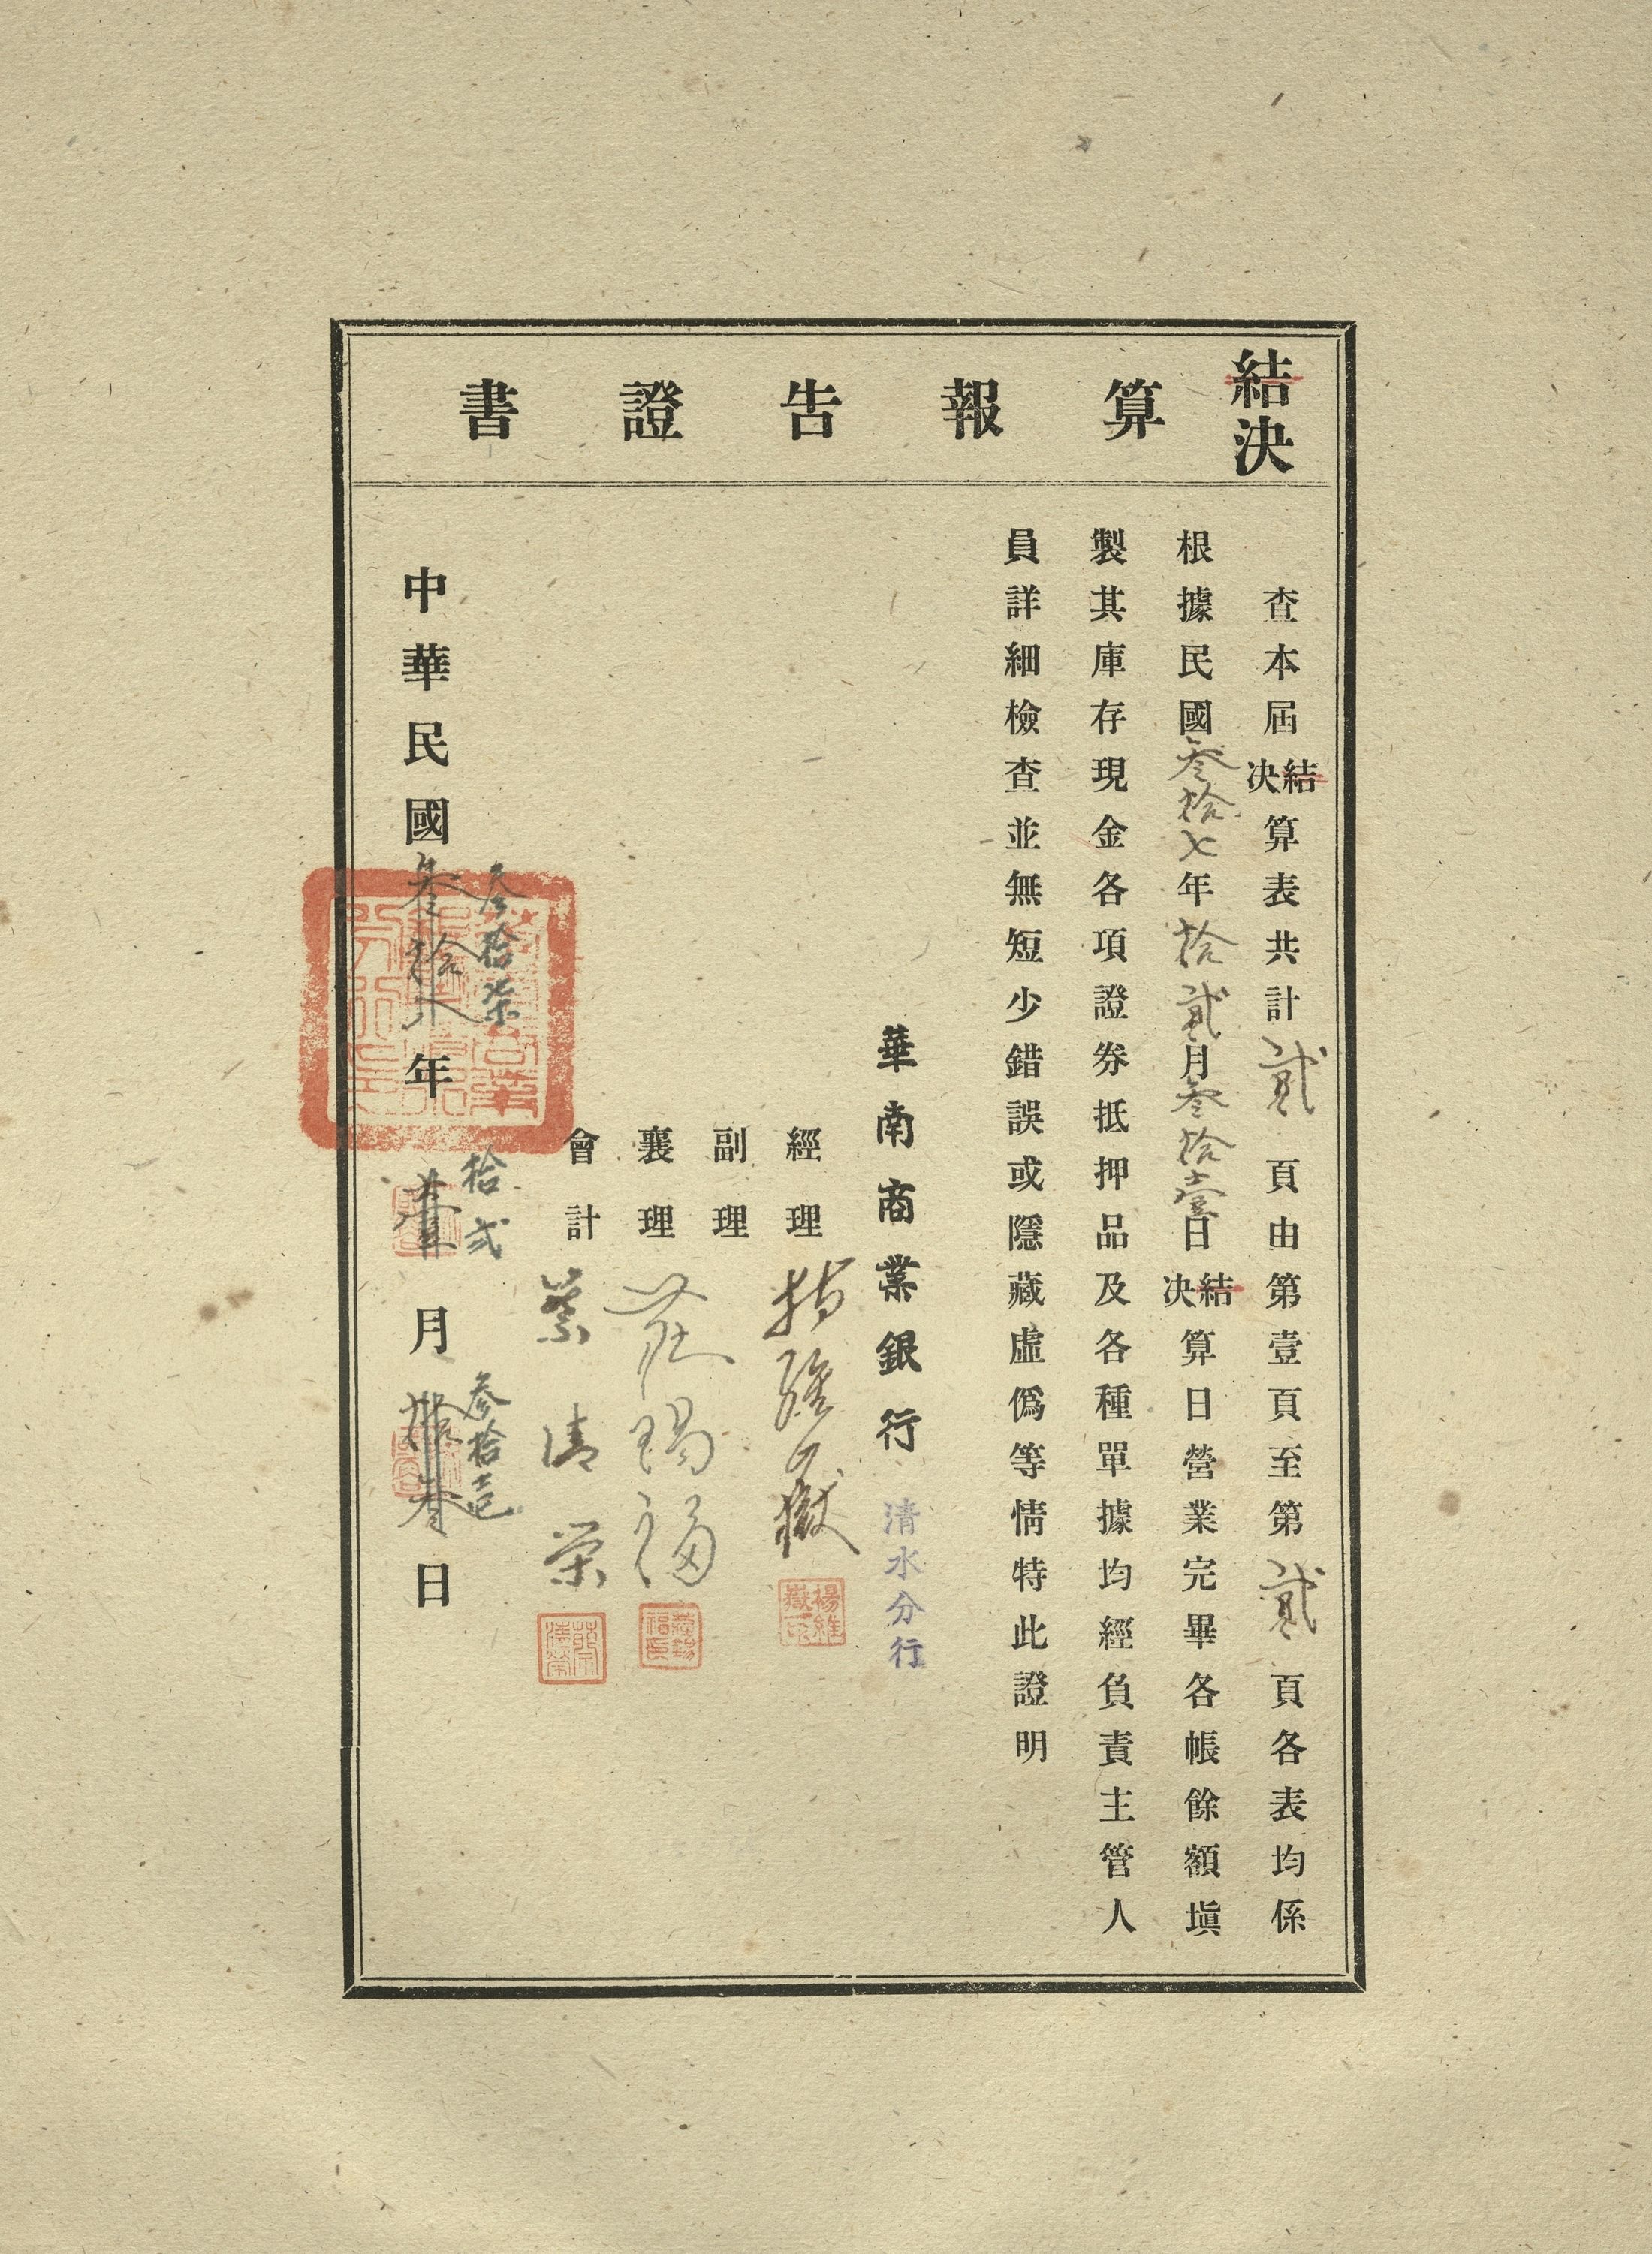 結決算報告證書
查本屆結決算表共計貳頁由第壹頁至第貳頁各表均係
根據民國叁拾七年拾貳月叁拾壹日結決算日營業完畢各帳餘額塡
製其庫存現金各項證券抵押品及各種單據均經負責主管人
員詳細檢查並無短少錯誤或隱藏虛僞等情特此證明
華南商業銀行 清水分行
經理 楊維嶽
楊維嶽印
副理
襄理 莊錫福
會計 蔡清榮
蔡清榮
叁拾柒 拾弍 叁拾壱
中華民國叁拾八年壹月拾叁日